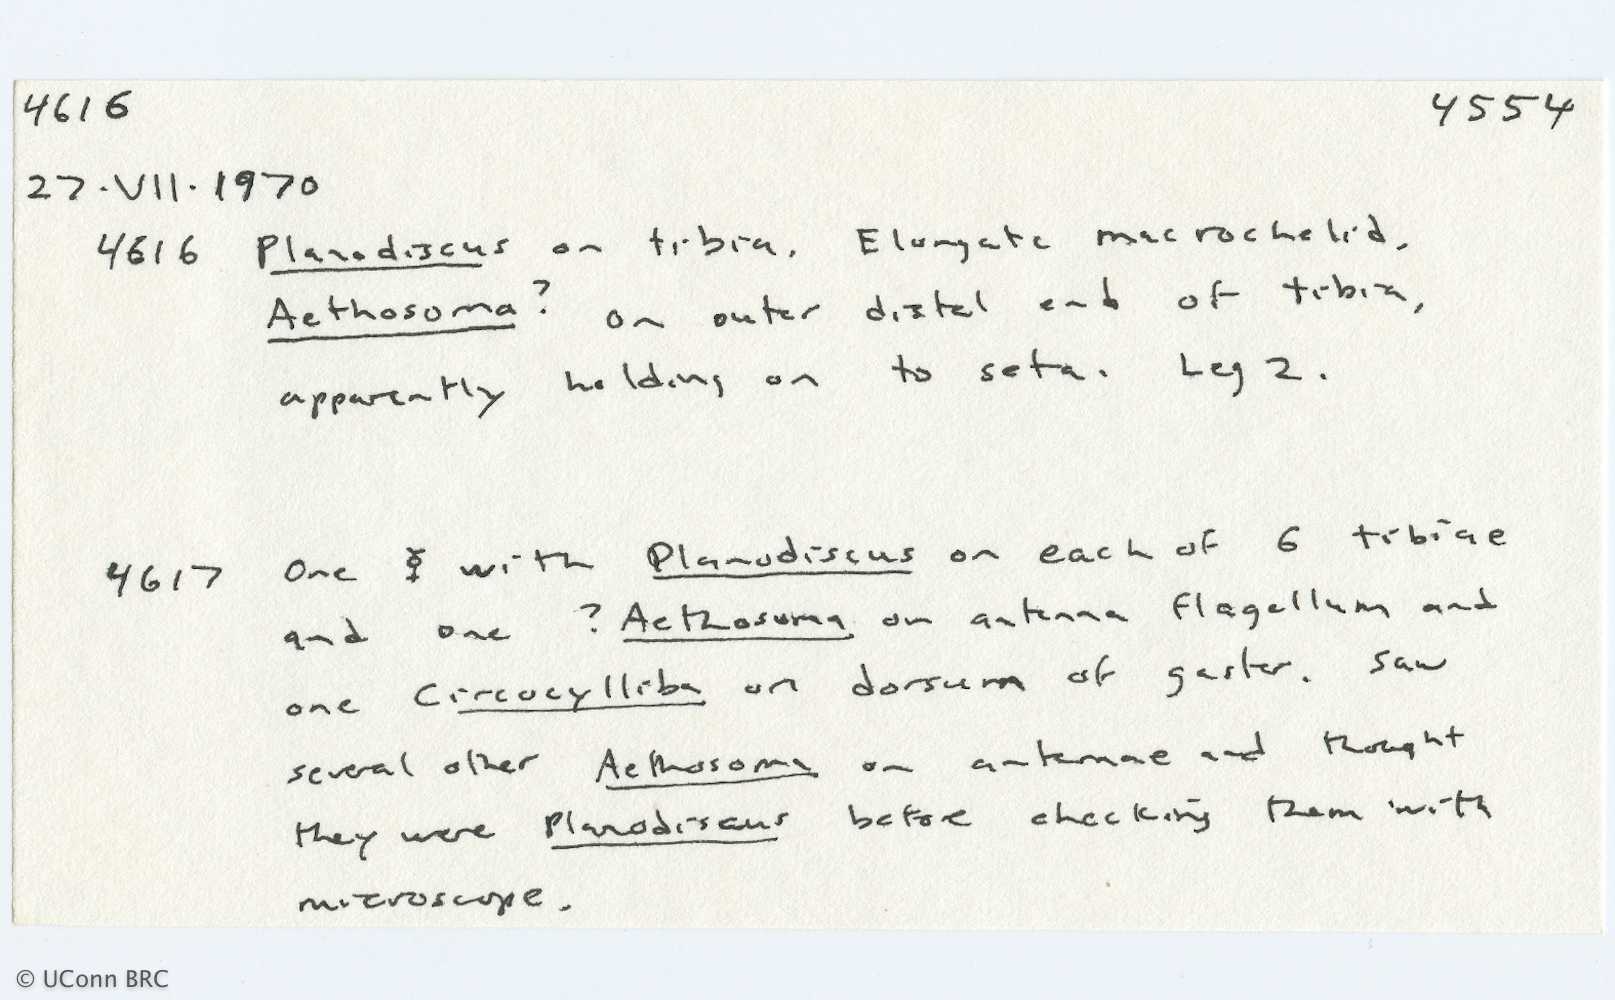 4616 4554
27.VII.1970
4616 Planodiscus on tibia. Elongate macrochelid,
Aethosoma? on outer distal end of tibia,
apparently holding on to seta. Leg 2.
4617 One ☿ with Planodiscus on each of 6 tibiae
and one ?Aethosoma on antenna flagellum and
one Circocylliba on dorsum of gaster. Saw
several other Aethosoma on antennae and thought
they were Planodiscus before checking them with
microscope.
© UConn BRC